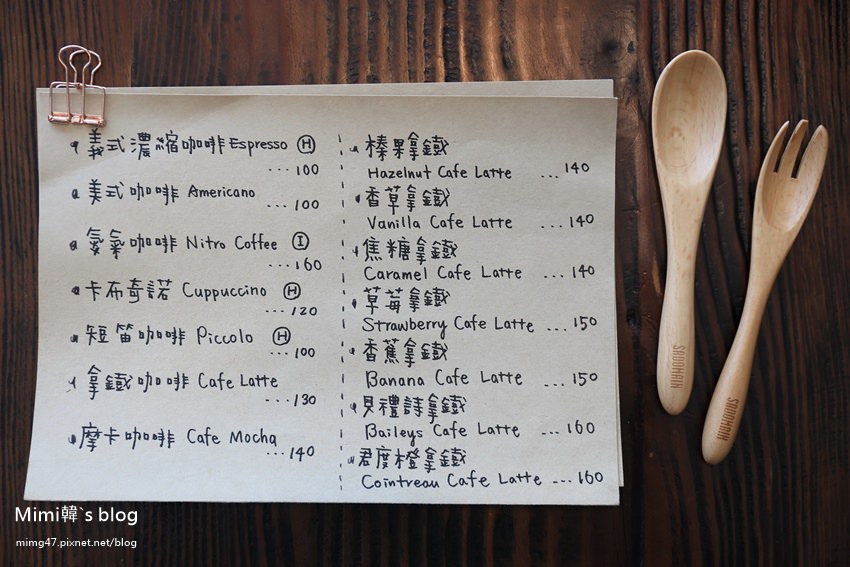 義式濃縮咖啡 Espresso Ⓗ
...100
美式咖啡 Americano
...100
氮氣咖啡 Nitro Coffee Ⓘ
...160
卡布奇諾 Cuppuccino Ⓗ
...120
短笛咖啡 Piccolo Ⓗ
...100
拿鐵咖啡 Cafe Latte
...130
摩卡咖啡 Cafe Mocha
...140
榛果拿鐵
Hazelnut Cafe Latte ...140
香草拿鐵
Vanilla Cafe Latte ...140
焦糖拿鐵
Caramel Cafe Latte ...140
草莓拿鐵
Strawberry Cafe Latte ...150
香蕉拿鐵
Banana Cafe Latte ...150
貝禮詩拿鐵
Baileys Cafe Latte ...160
君度橙拿鐵
Cointreau Cafe Latte ...160
SADOMAIN
SADOMAIN
Mimi韓`s blog
mimg47.pixnet.net/blog